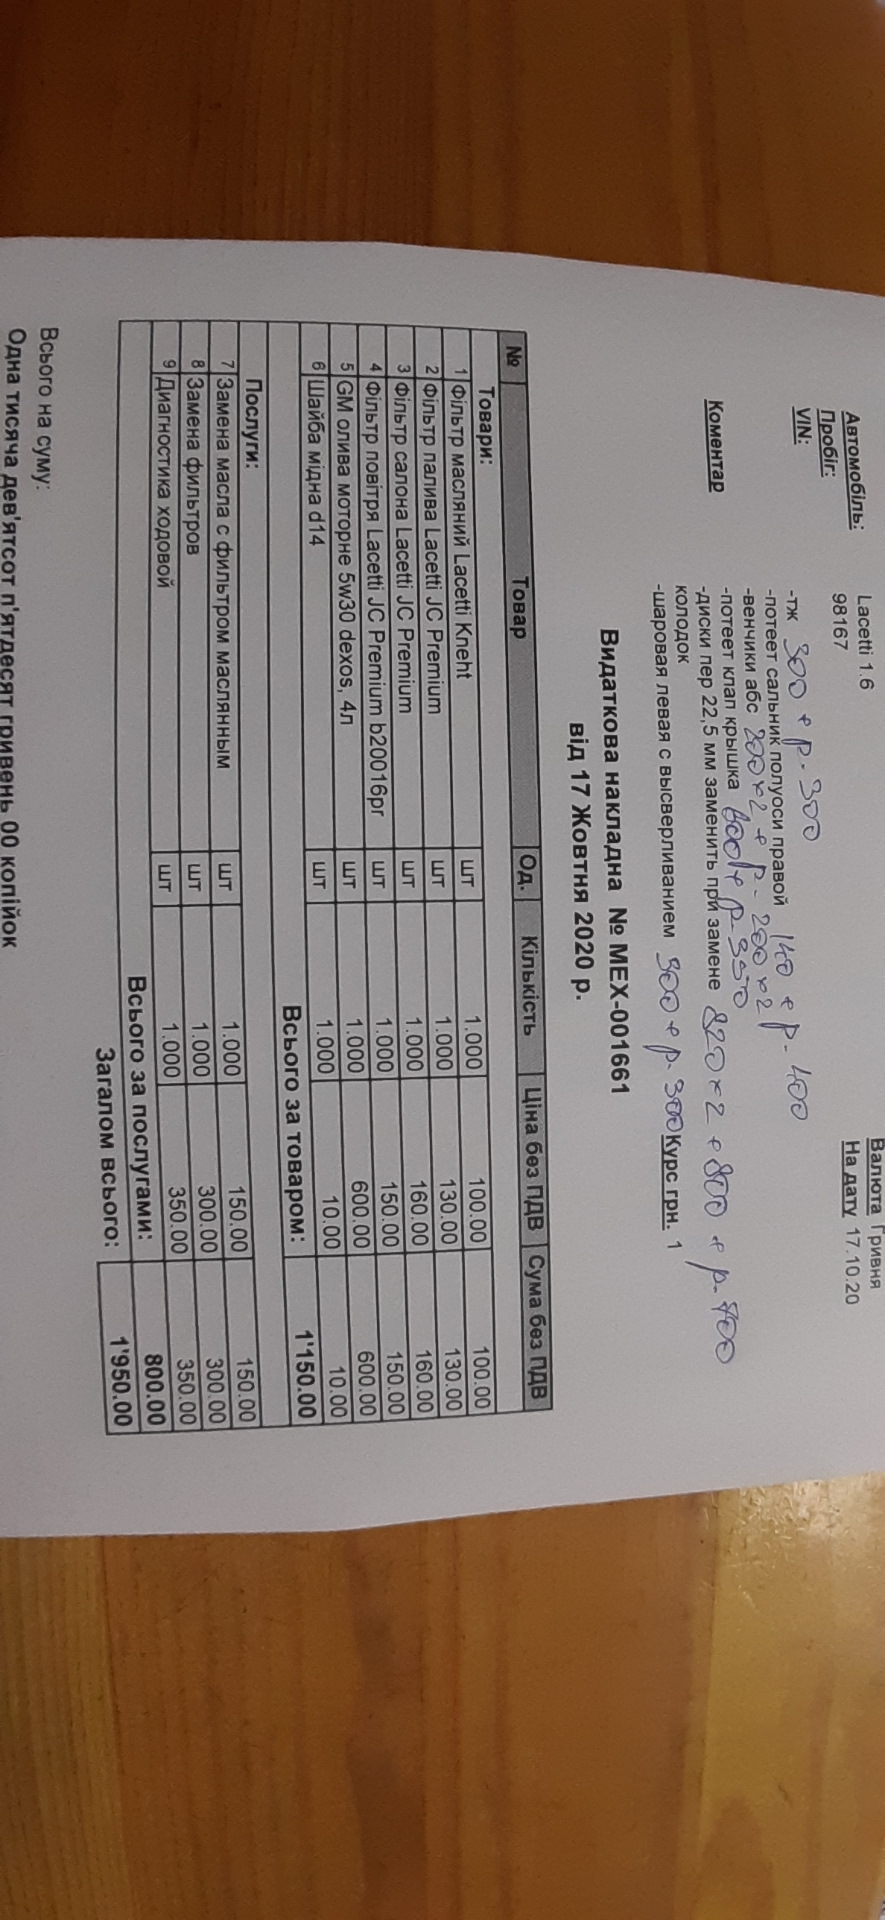 Валюта Гривня
Автомобіль: Lacetti 1.6 На дату 17.10.20
Пробіг: 98167
VIN:
-тж 300 + р-300
-потеет сальник полуоси правой 140 + р-400
-венчики абс 200x2 + р-200x2
-потеет клап крышка + р-350
Коментар -диски пер 22,5 мм заменить при замене 820x2 + 800 + р-700
колодок
-шаровая левая с высверливанием 300 + р-300 Курс грн. 1
Видаткова накладна № МЕХ-001661
від 17 Жовтня 2020 р.
№ Товар Од. Кількість Ціна без ПДВ Сума без ПДВ
Товари:
1 Фільтр масляний Lacetti Kneht шт 1.000 100.00 100.00
2 Фільтр палива Lacetti JC Premium шт 1.000 130.00 130.00
3 Фільтр салона Lacetti JC Premium шт 1.000 160.00 160.00
4 Фільтр повітря Lacetti JC Premium b20016pr шт 1.000 150.00 150.00
5 GM олива моторне 5w30 dexos, 4л шт 1.000 600.00 600.00
6 Шайба мідна d14 шт 1.000 10.00 10.00
Всього за товаром: 1'150.00
Послуги:
7 Замена масла с фильтром маслянным шт 1.000 150.00 150.00
8 Замена фильтров шт 1.000 300.00 300.00
9 Диагностика ходовой шт 1.000 350.00 350.00
Всього за послугами: 800.00
Загалом всього: 1'950.00
Всього на суму:
Одна тисяча дев'ятсот п'ятдесят гривень 00 копійок